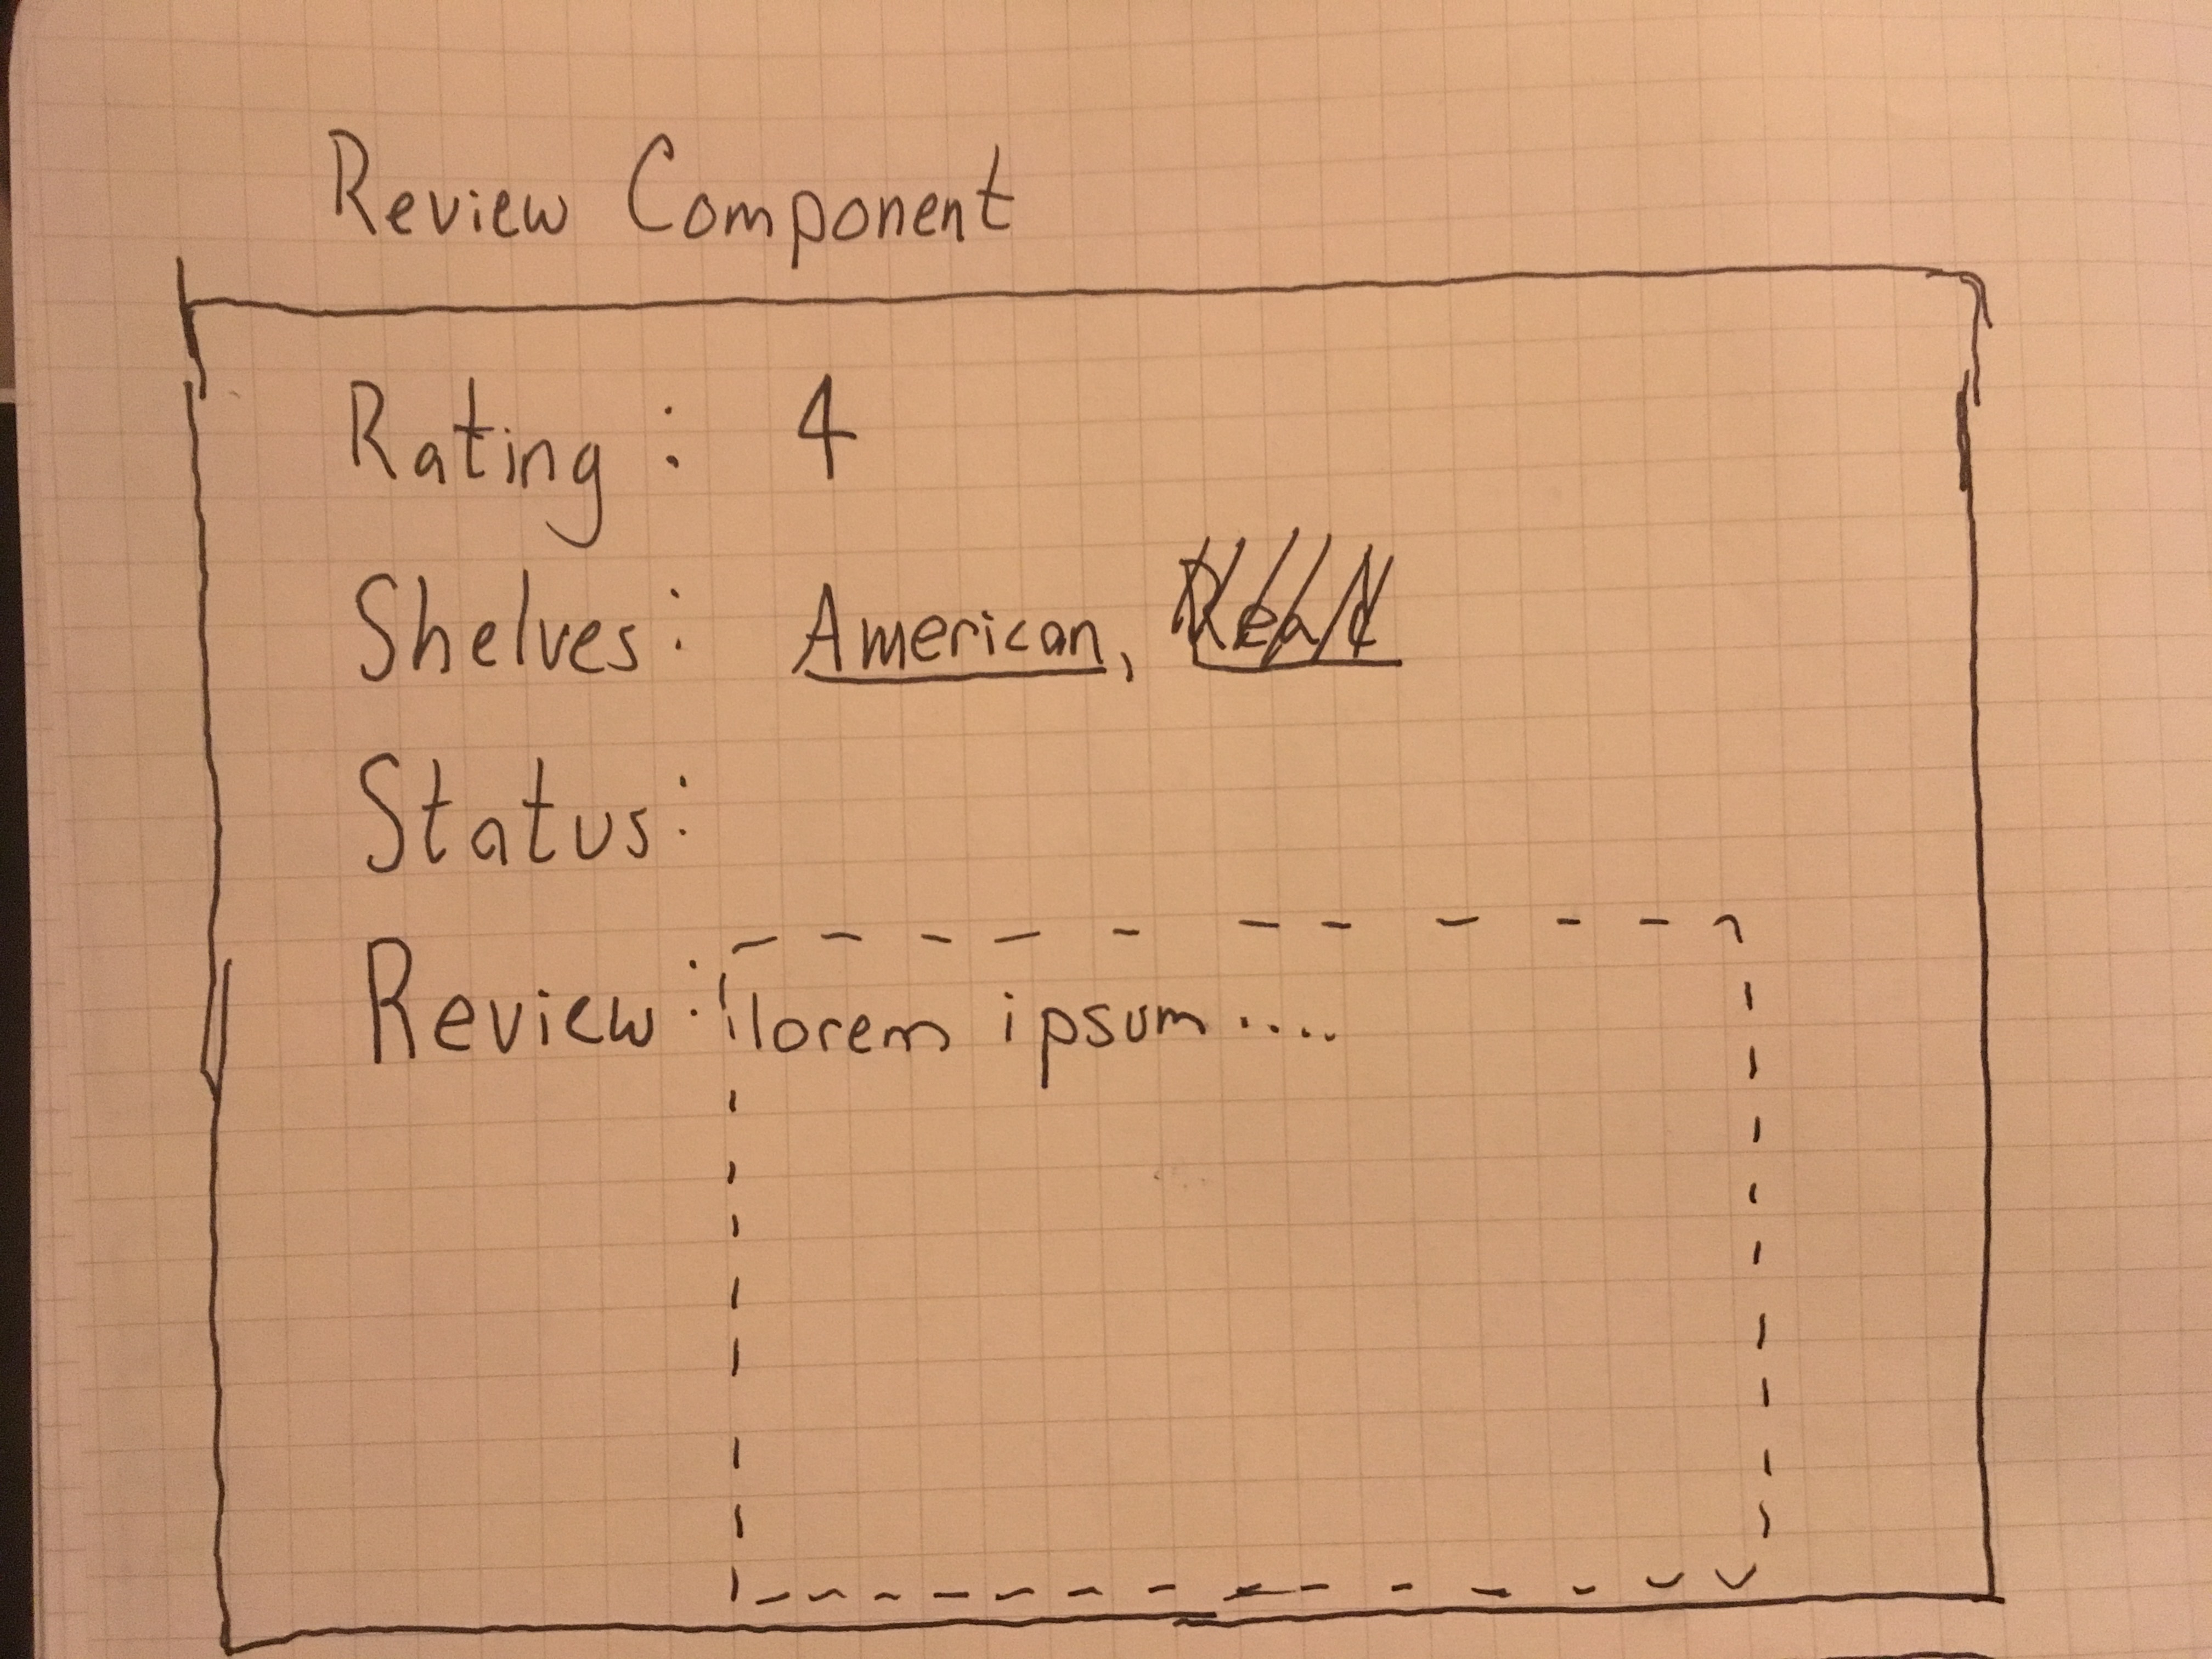 Review Component
Rating: 4
Shelves: American, Read
Status:
Review: lorem ipsum....